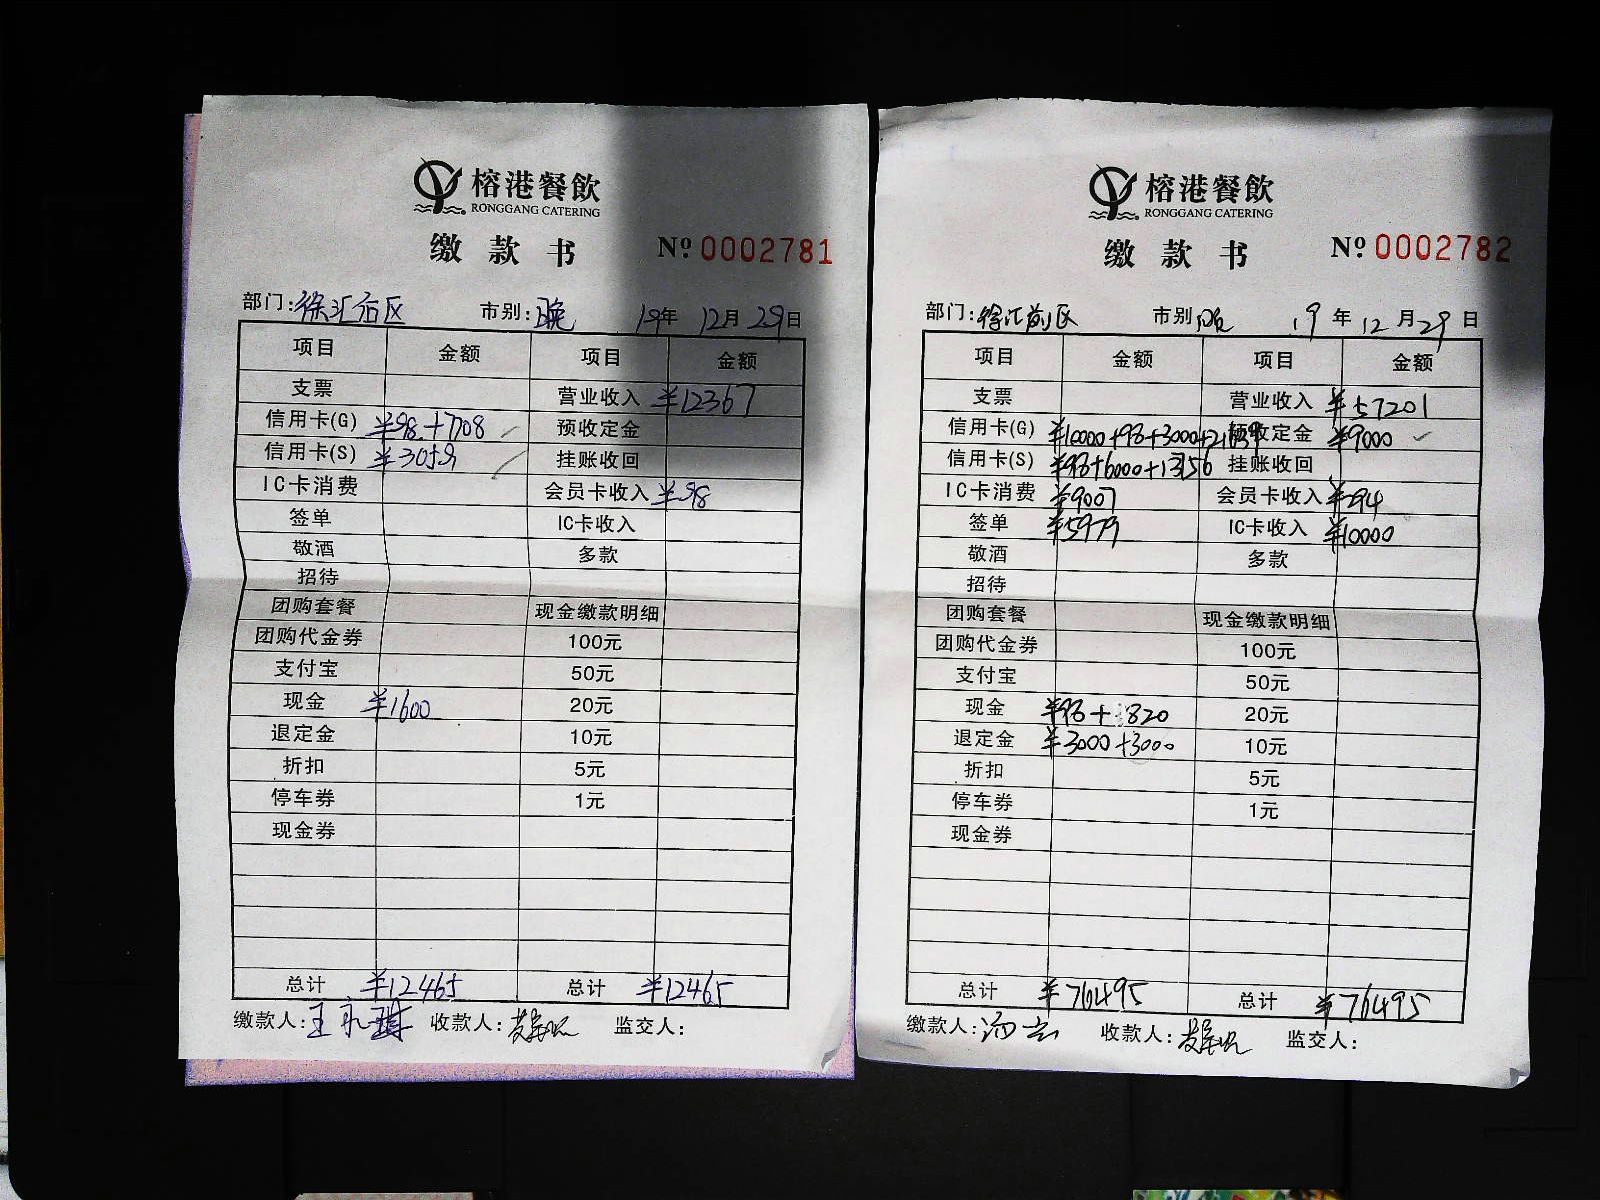 榕港餐飲
RONGGANG CATERING
缴款书 Nº 0002781
部门:徐汇后区 市别:晚 19年12月29日
项目 金额 项目 金额
支票 营业收入 ¥12367
信用卡(G) ¥98+7708 预收定金
信用卡(S) ¥3059 挂账收回
IC卡消费 会员卡收入 ¥98
签单 IC卡收入
敬酒 多款
招待
团购套餐 现金缴款明细
团购代金券 100元
支付宝 50元
现金 ¥1600 20元
退定金 10元
折扣 5元
停车券 1元
现金券
总计 ¥12465 总计 ¥12465
缴款人:王 收款人: 监交人:
榕港餐飲
RONGGANG CATERING
缴款书 Nº 0002782
部门:徐汇前区 市别:晚 19年12月29日
项目 金额 项目 金额
支票 营业收入 ¥57201
信用卡(G) ¥10000+98+3000+21039 预收定金 ¥9000
信用卡(S) ¥98+6000+13356 挂账收回
IC卡消费 ¥9007 会员卡收入 ¥294
签单 ¥5979 IC卡收入 ¥10000
敬酒 多款
招待
团购套餐 现金缴款明细
团购代金券 100元
支付宝 50元
现金 ¥98+1820 20元
退定金 ¥3000+3000 10元
折扣 5元
停车券 1元
现金券
总计 ¥76495 总计 ¥76495
缴款人:汤云 收款人: 监交人: